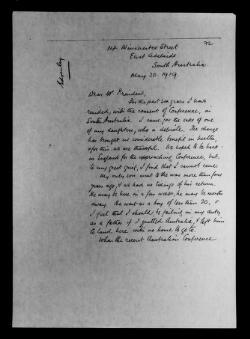 72
14 Winchester Street
East Adelaide
South Australia
May 20. 1919.
Dear Mr President,
For the past six years I have
resided, with the consent of Conference, in
South Australia. I came for the sake of one
of my daughters, who is delicate. The change
has brought us considerable benefit in health,
for this we are thankful. We hoped to be back
in England for the approaching Conference, but,
to my great grief, I find that I cannot come.
My only son went to the war more than four
years ago, & we have no tidings of his return.
He may be here in a few weeks, he may be months
away. He went as a boy of less than 20, &
I feel that I should be failing in my duty
as a father if I quitted Australia, & left him
to land here with no home to go to.
When the recent Australian Conference